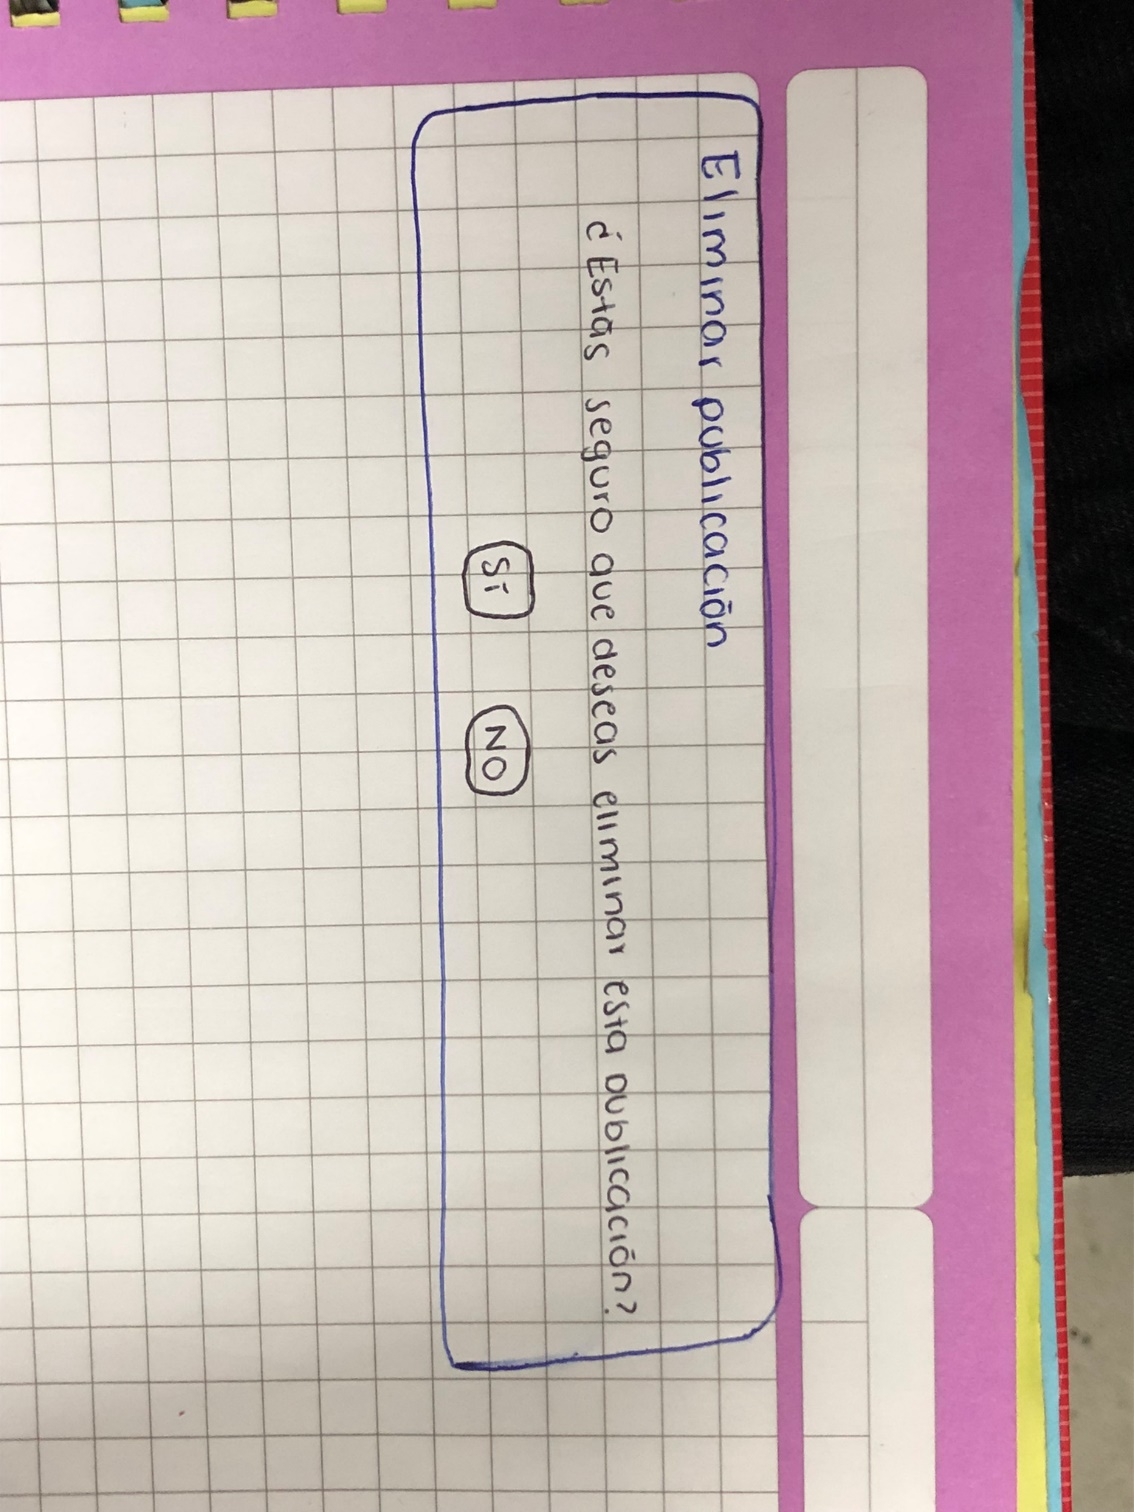 Eliminar publicación
¿Estás seguro que deseas eliminar esta publicación?
Sí NO